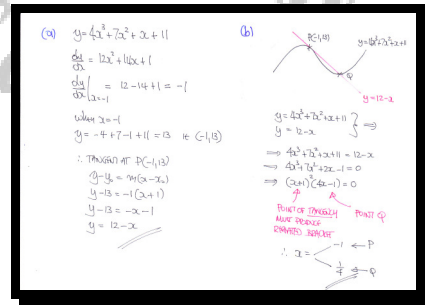 (a) y = 4x³ + 7x² + x + 11
dy/dx = 12x² + 14x + 1
dy/dx |x=-1 = 12 - 14 + 1 = -1
when x = -1
y = -4 + 7 - 1 + 11 = 13 ie (-1,13)
∴ TANGENT AT P(-1,13)
y - y₀ = m(x - x₀)
y - 13 = -1(x + 1)
y - 13 = -x - 1
y = 12 - x
(b)
P(-1,13)
y = 4x³ + 7x² + x + 11
Q
y = 12 - x
y = 4x³ + 7x² + x + 11
y = 12 - x } ⇒
⇒ 4x³ + 7x² + x + 11 = 12 - x
⇒ 4x³ + 7x² + 2x - 1 = 0
⇒ (x + 1)²(4x - 1) = 0
POINT OF TANGENCY
MUST PRODUCE
REPEATED BRACKET
POINT Q
∴ x = -1 ← P
1/4 ← Q